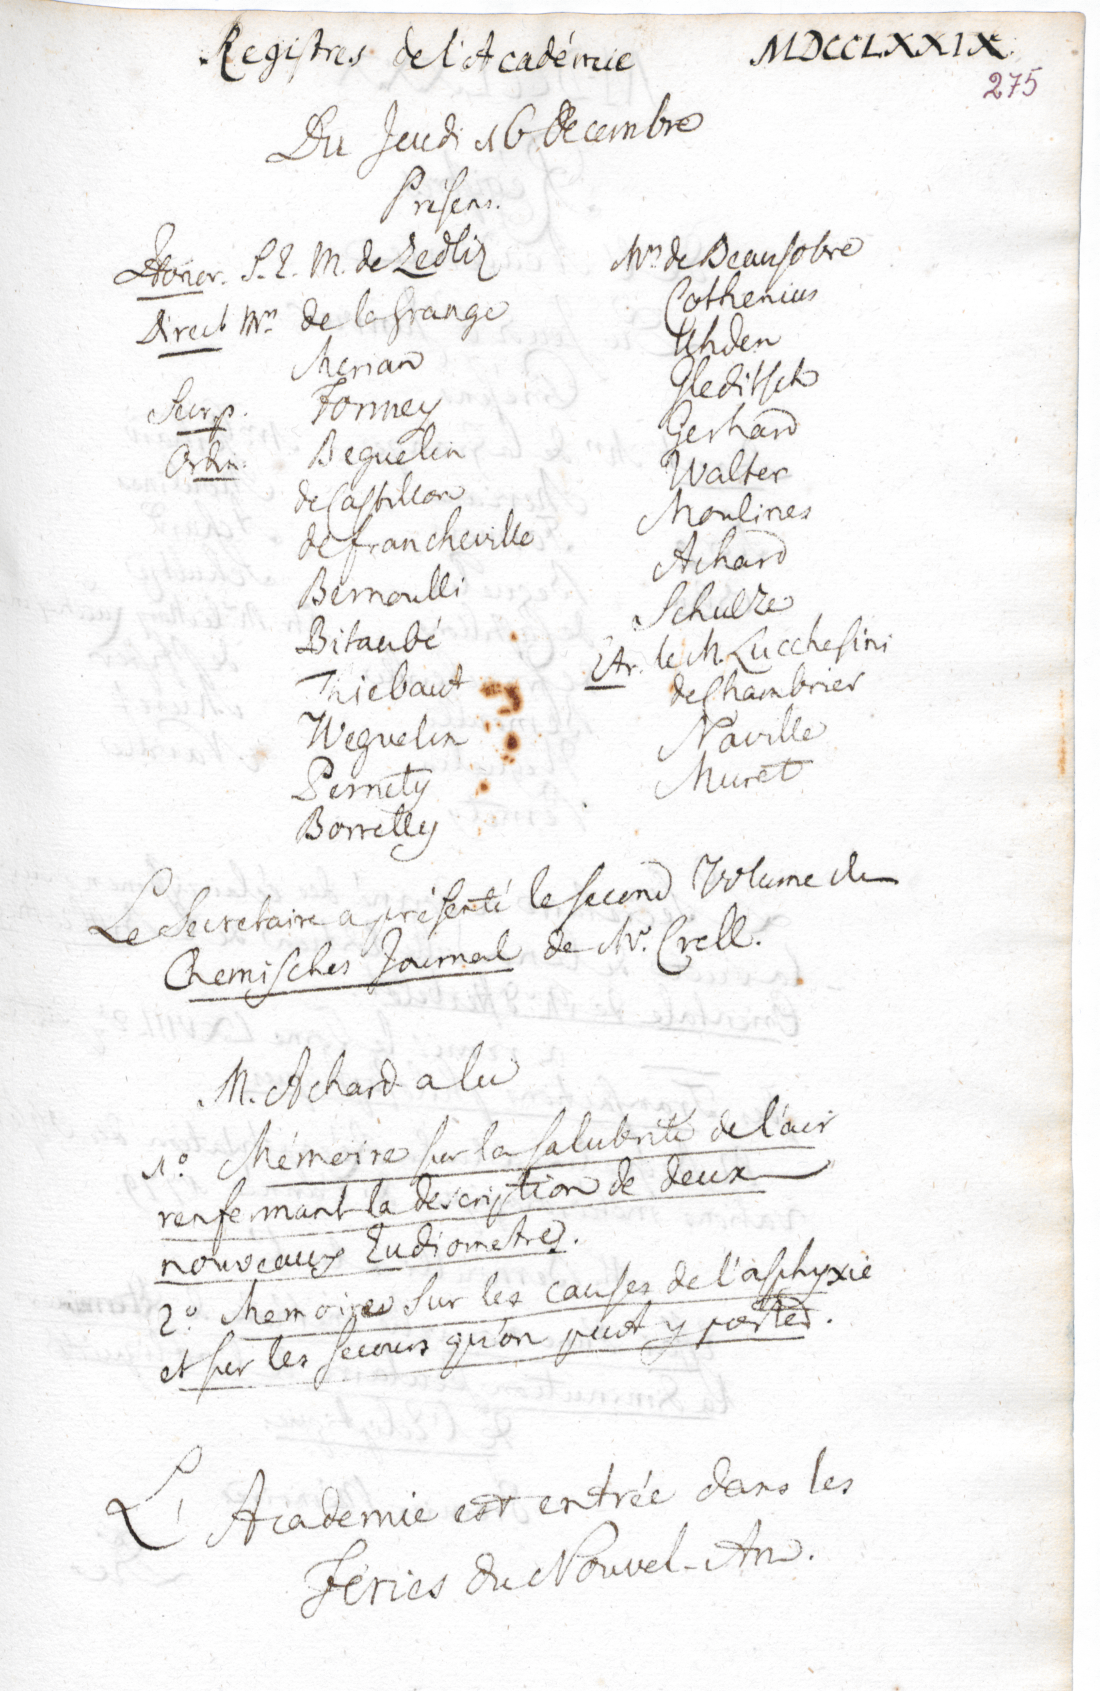 Registres de l'Académie MDCCLXXIX.
275
Du Jeudi 16 Decembre
Présens.
Honor. S. E. M. de Zedliz
Direct Mrs de la Grange
Merian
Secr. p. Formey
Ordin. Beguelin
de Castillon
de Francheville
Bernoulli
Bitaubé
Thiebaut
Weguelin
Pernety
Borrelly
Mrs de Beausobre
Cothenius
Uhden
Gleditsch
Gerhard
Walter
Moulines
Achard
Schulze
Etr. le M. Lucchesini
de Chambrier
Naville
Muret
Le Secretaire a présenté le second Volume du
Chemisches Journal de Mr. Crell.
M. Achard a lu
1.o Mémoire sur la salubrité de l'air
renfermant la description de deux
nouveaux Eudiometres.
2.o Memoire sur les causes de l'asphyxie
et sur les secours qu'on peut y porter.
L'Academie est entrée dans les
Féries du Nouvel-An.